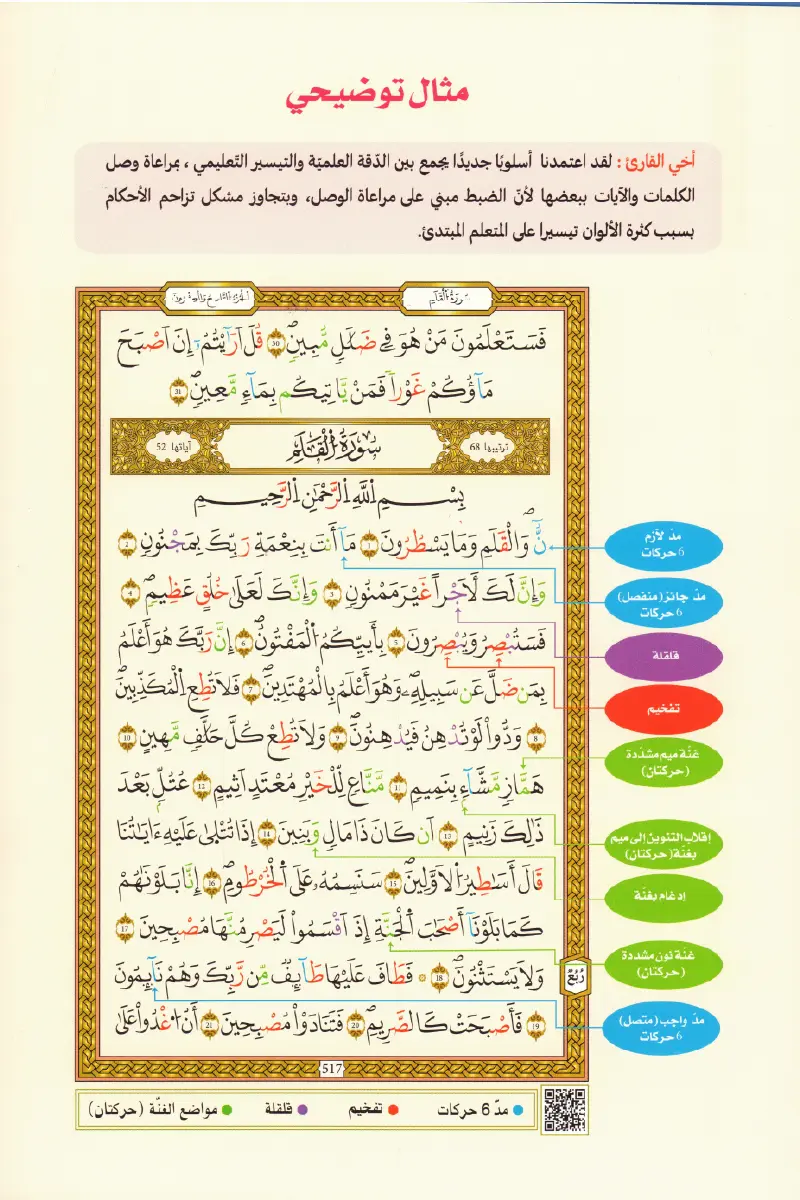 مثال توضيحي
أخي القارئ : لقد اعتمدنا أسلوبًا جديدًا يجمع بين الدّقة العلميّة والتيسير التّعليمي ، بمراعاة وصل
الكلمات والآيات ببعضها لأنّ الضبط مبني على مراعاة الوصل، ويتجاوز مشكل تزاحم الأحكام
بسبب كثرة الألوان تيسيرا على المتعلم المبتدئ.
سورة القلم
الجزء التاسع والعشرون
فَسَتَعْلَمُونَ مَنْ هُوَ فِي ضَلَٰلٖ مُّبِينٖۖ 30 قُلَ اَرَآيْتُمُۥٓ إِنَ اَصْبَحَ
مَآؤُكُمْ غَوْراٗ فَمَنْ يَّاتِيكُم بِمَآءٖ مَّعِينٖۖ 31
ترتيبها 68
سُورَةُ الْقَلَمِ
آياتها 52
بِسْمِ اِللَّهِ اِلرَّحْمَٰنِ اِلرَّحِيمِ
نٓۖ وَالْقَلَمِ وَمَا يَسْطُرُونَ 1 مَآ أَنتَ بِنِعْمَةِ رَبِّكَ بِمَجْنُونٖ 2
وَإِنَّ لَكَ لَأَجْراً غَيْرَ مَمْنُونٖ 3 وَإِنَّكَ لَعَلَىٰ خُلُقٍ عَظِيمٖۖ 4
فَسَتُبْصِرُ وَيُبْصِرُونَ 5 بِأَييِّكُمُ اُلْمَفْتُونُۖ 6 إِنَّ رَبَّكَ هُوَ أَعْلَمُ
بِمَن ضَلَّ عَن سَبِيلِهِۦ وَهُوَ أَعْلَمُ بِالْمُهْتَدِينَۖ 7 فَلَا تُطِعِ اِلْمُكَذِّبِينَۖ
8 وَدُّواْ لَوْ تُدْهِنُ فَيُدْهِنُونَۖ 9 وَلَا تُطِعْ كُلَّ حَلَّافٖ مَّهِينٍ 10
هَمَّازٖ مَّشَّآءِۢ بِنَمِيمٖ 11 مَّنَّاعٖ لِّلْخَيْرِ مُعْتَدٍ اَثِيمٍ 12 عُتُلِّۢ بَعْدَ
ذَٰلِكَ زَنِيمٍ 13 اَن كَانَ ذَا مَالٖ وَبَنِينَ 14 إِذَا تُتْلَىٰ عَلَيْهِ ءَايَٰتُنَا
قَالَ أَسَٰطِيرُ اُلَاوَّلِينَۖ 15 سَنَسِمُهُۥ عَلَى اَلْخُرْطُومِۖ 16 إِنَّا بَلَوْنَٰهُمْ
كَمَا بَلَوْنَآ أَصْحَٰبَ اَلْجَنَّةِ إِذَ اَقْسَمُواْ لَيَصْرِمُنَّهَا مُصْبِحِينَ 17
وَلَا يَسْتَثْنُونَۖ 18 ۞ فَطَافَ عَلَيْهَا طَآئِفٞ مِّن رَّبِّكَ وَهُمْ نَآئِمُونَ
19 فَأَصْبَحَتْ كَالصَّرِيمِۖ 20 فَتَنَادَوْاْ مُصْبِحِينَ 21 أَنُ اُغْدُواْ عَلَىٰ
رُبُعُ
517
مدّ لازم
6 حركات
مدّ جائز (منفصل)
6 حركات
قلقلة
تفخيم
غنّة ميم مشدّدة
(حركتان)
إقلاب التنوين إلى ميم
بغنّة (حركتان)
إدغام بغنّة
غنّة نون مشددة
(حركتان)
مدّ واجب (متصل)
6 حركات
مدّ 6 حركات
تفخيم
قلقلة
مواضع الغنّة (حركتان)